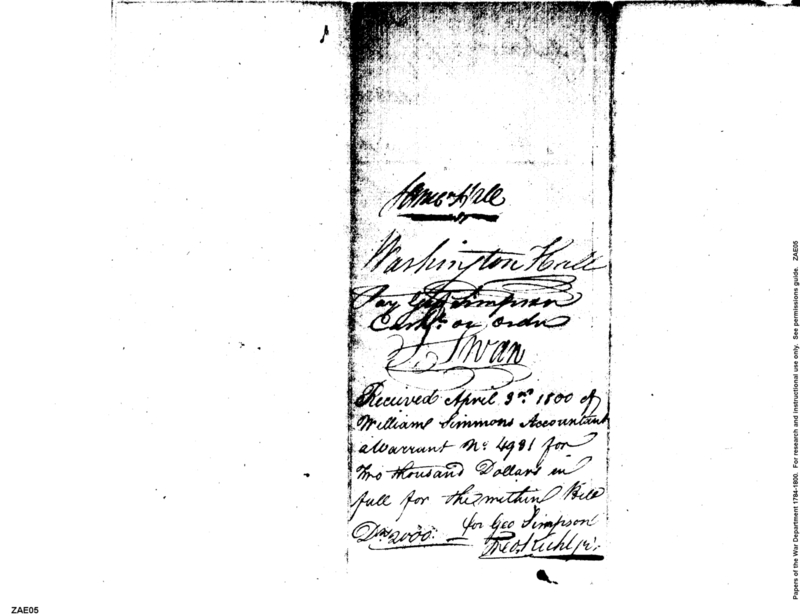 James Hall
Washington Hall
Pay Geo Simpson
Cashr. or order
J. Swan
Received April 3rd. 1800 of
William Simmons Accountant
a Warrant No. 4981 for
Two thousand Dollars in
full for the within Bill
for Geo Simpson
Drs 2000.
Theo Kuhl jr.
ZAE05
Papers of the War Department 1784-1800. For research and instructional use only. See permissions guide. ZAE05